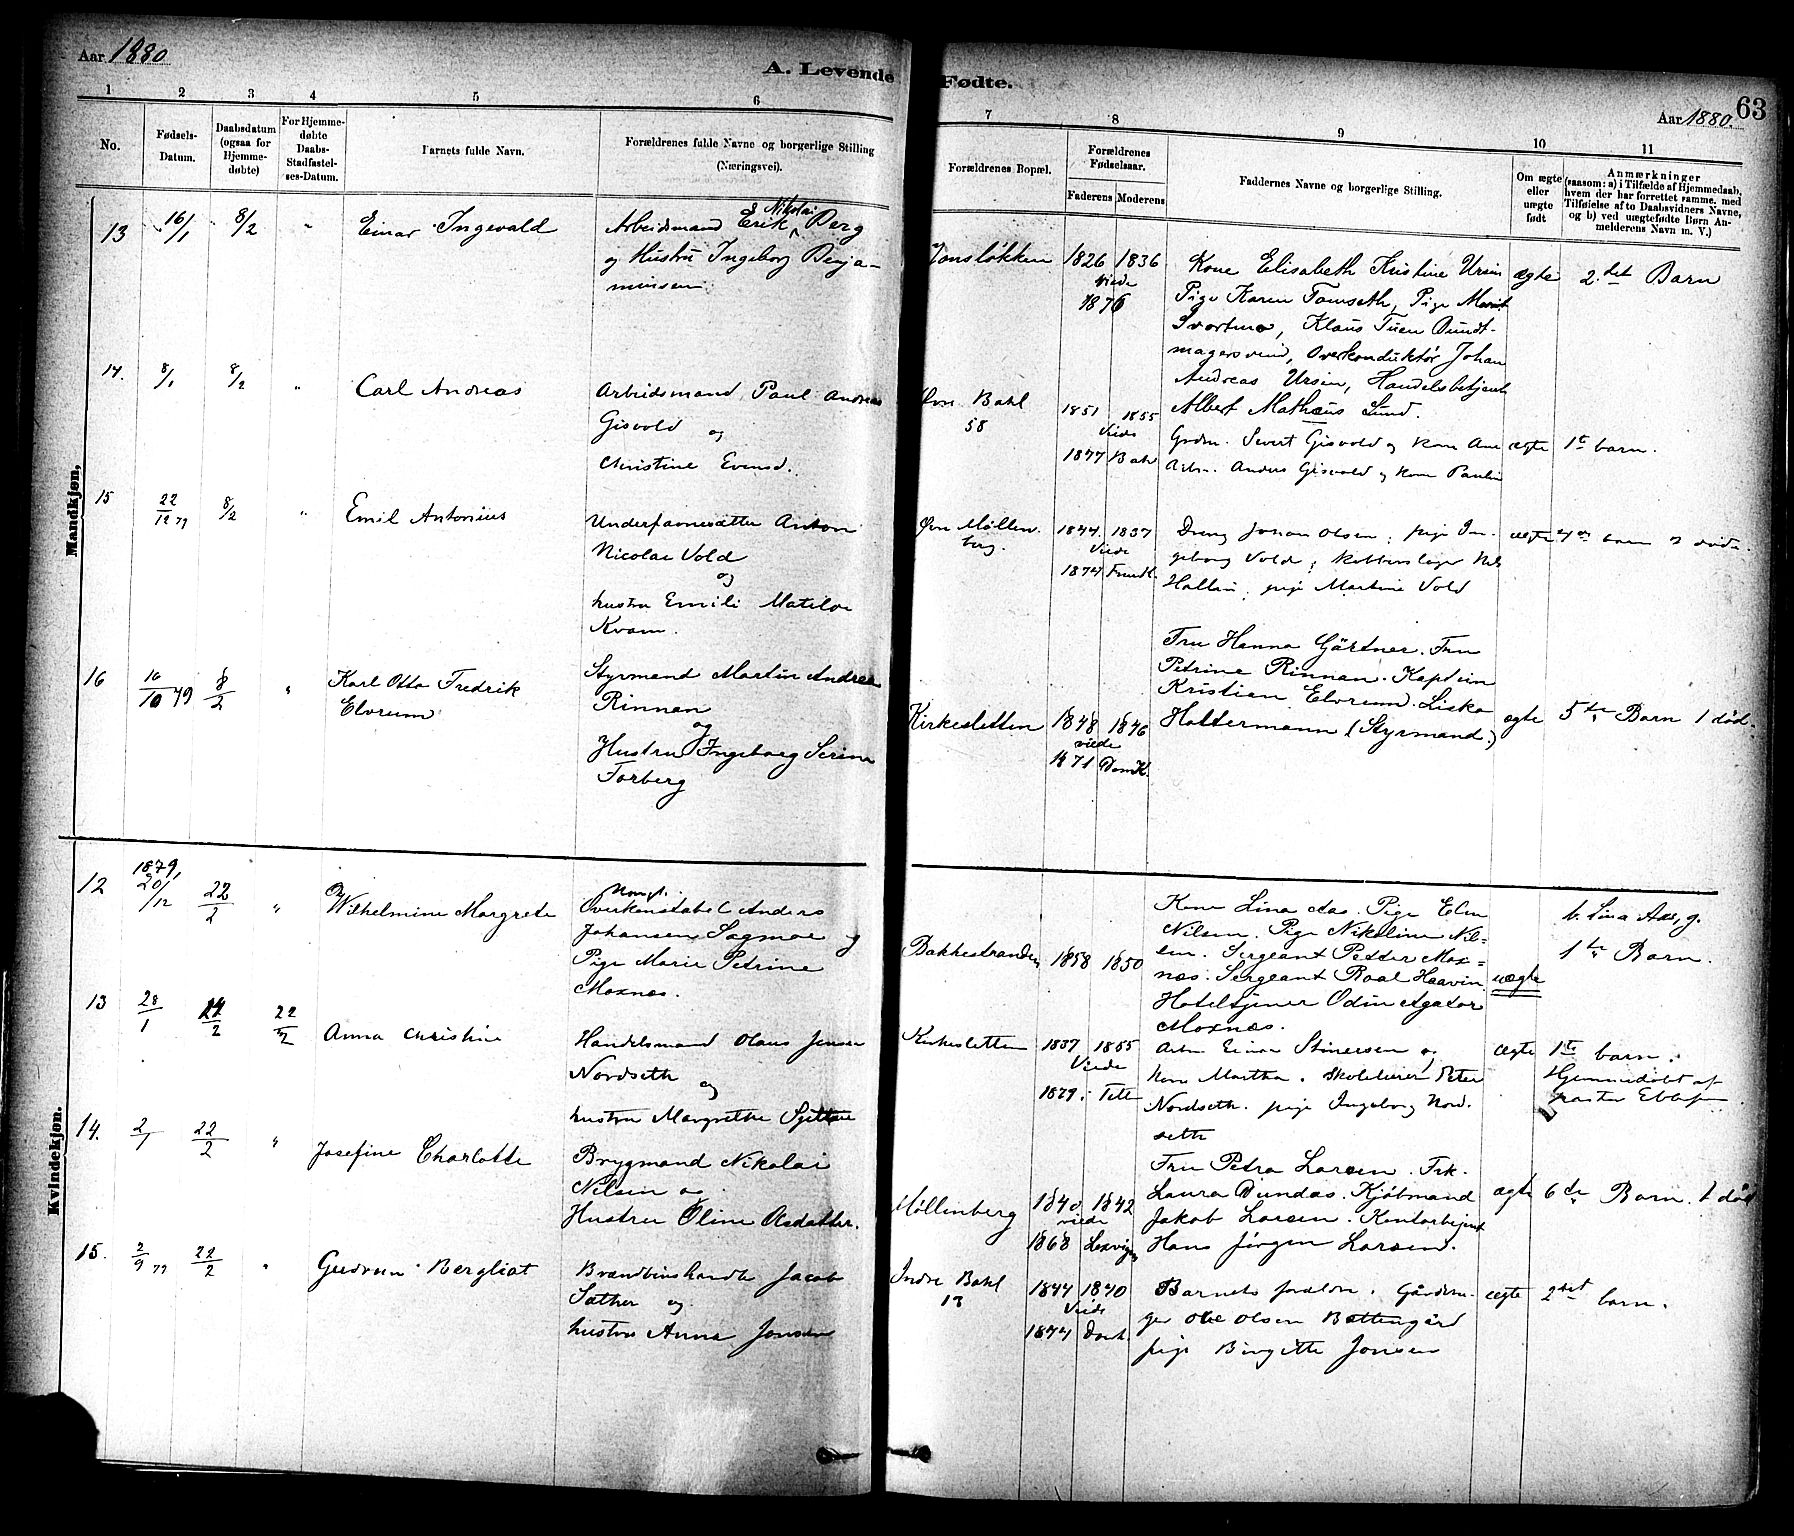 Aar 1880.
A. Levende Fødte.
63
Aar 1880.
1 2 3 4 5 6 7 8 9 10 11
No.
Fødsels-
Datum.
Daabsdatum
(ogsaa for
Hjemme-
døbte)
For Hjemme-
døbte
Daabs-
Stadfæstel-
ses-Datum.
Barnets fulde Navn.
Forældrenes fulde Navne og borgerlige Stilling
(Næringsvei).
Forældrenes Bopæl.
Forældrenes
Fødselsaar.
Faderens Moderens
Faddernes Navne og borgerlige Stilling.
Om ægte
eller
uægte
født
Anmærkninger
(saasom: a) i Tilfælde af Hjemmedaab,
hvem der har forrettet samme, med
Tilføielse af to Daabsvidners Navne,
og b) ved uægtefødte Børn An-
melderens Navn m. V.)
Mandkjøn,
13 16/1 8/2 " Einar Ingevald
Arbeidsmand Erik Nikolai Berg
og Hustru Ingeborg Benja-
minsen
Jonsløkken 1826 1836
viede
1876
Kone Elisabeth Kristine Ursin
Pige Karen Tomseth, Pige Marit
Svortmo, Klaus Tuen Bundt-
magersvend, Overkonduktør Johan
Andreas Ursin, Handelsbetjent
Albert Mathæus Lund.
ægte 2.det Barn
14. 8/1 8/2 " Carl Andreas
Arbeidsmand Paul Andreas
Gisvold og
Christine Evensd.
Øvre Bakl
58
1851 1855
Viede
1877 Bakl
Grdm. Sivert Gisvold og kone Ane
Arbm. Anders Gisvold og kone Paulin
ægte 1te barn.
15 22/12 79 8/2 " Emil Antonius
Underfavnesætter Anton
Nicolai Vold
og
hustru Emili Matilde
Kvam.
Øvre Møllen
berg.
1844 1837
Viede
1874
Dreng Johan Olsen; pige In-
geborg Vold; kobberslager Nils
Hallein; pige Martine Vold
ægte
16 10/10 79 8/2 " Karl Otto Fredrik
Elvrum
Styrmand Martin Andreas
Rinnan
og
Hustru Ingeborg Serine
Forberg
Kirkesletten 1848 1846
viede
1871 DomK.
Fru Hanna Gärtner. Fru
Petrine Rinnan. Kaptein
Kristian Elvrum. Liska
Hattermann (Styrmand.)
ægte 5te Barn 1 død.
Kvindekjøn.
12 1879, 20/12 22/2 " Wilhelmine Margrete
Overkonstabel Anders
Johansen Sagmoe og
Pige Marie Petrine
Moxnæs.
Bakkestranden 1858 1850
Kone Lina Aas. Pige Elen
Nilsen. Pige Nikoline Nil-
sen. Sergeant Petter Mox-
næs. Sergeant Roal Haavin
Hoteltjener Odin Agator
Moxnæs.
uægte
b. Lina Aas, g.
1te Barn.
13 28/1 14/2 22/2 Anna Christine
Handelsmand Olaus Jensen
Nordseth og
hustru Margrethe
Kirkesletten 1837 1855
Viede
1879.
Arbm Einar Steinersen og
kone Martha. skolelærer Peter
Nordseth. pige Ingeborg Nord.
seth
ægte 1te barn.
Hjemmedøbt af
pastor
14. 2/1 22/2 " Josefine Charlotte
Brygmand Nikolai
Nilsen og
Hustru Oline Olsdatter.
Møllenberg 1840 1842
viede
1868
Fru Petra Larsen. Frk.
Laura Dundas. Kjøbmand
Jakob Larsen. Kontorbetjent
Hans Jørgen Larsen.
ægte 6te Barn. 1 død
15. 2/9 79 22/2 " Gudrun Bergliot
Brændevinshandle Jacob
Sæther og
hustru Anna Jonsen
Indre Bakl
13
1844 1840
Viede
1874 Domk.
Barnets foreldre. Gårdbru-
ger Ole Olsen Bættengård
pige Birgitte Jonsen
ægte 2det barn.